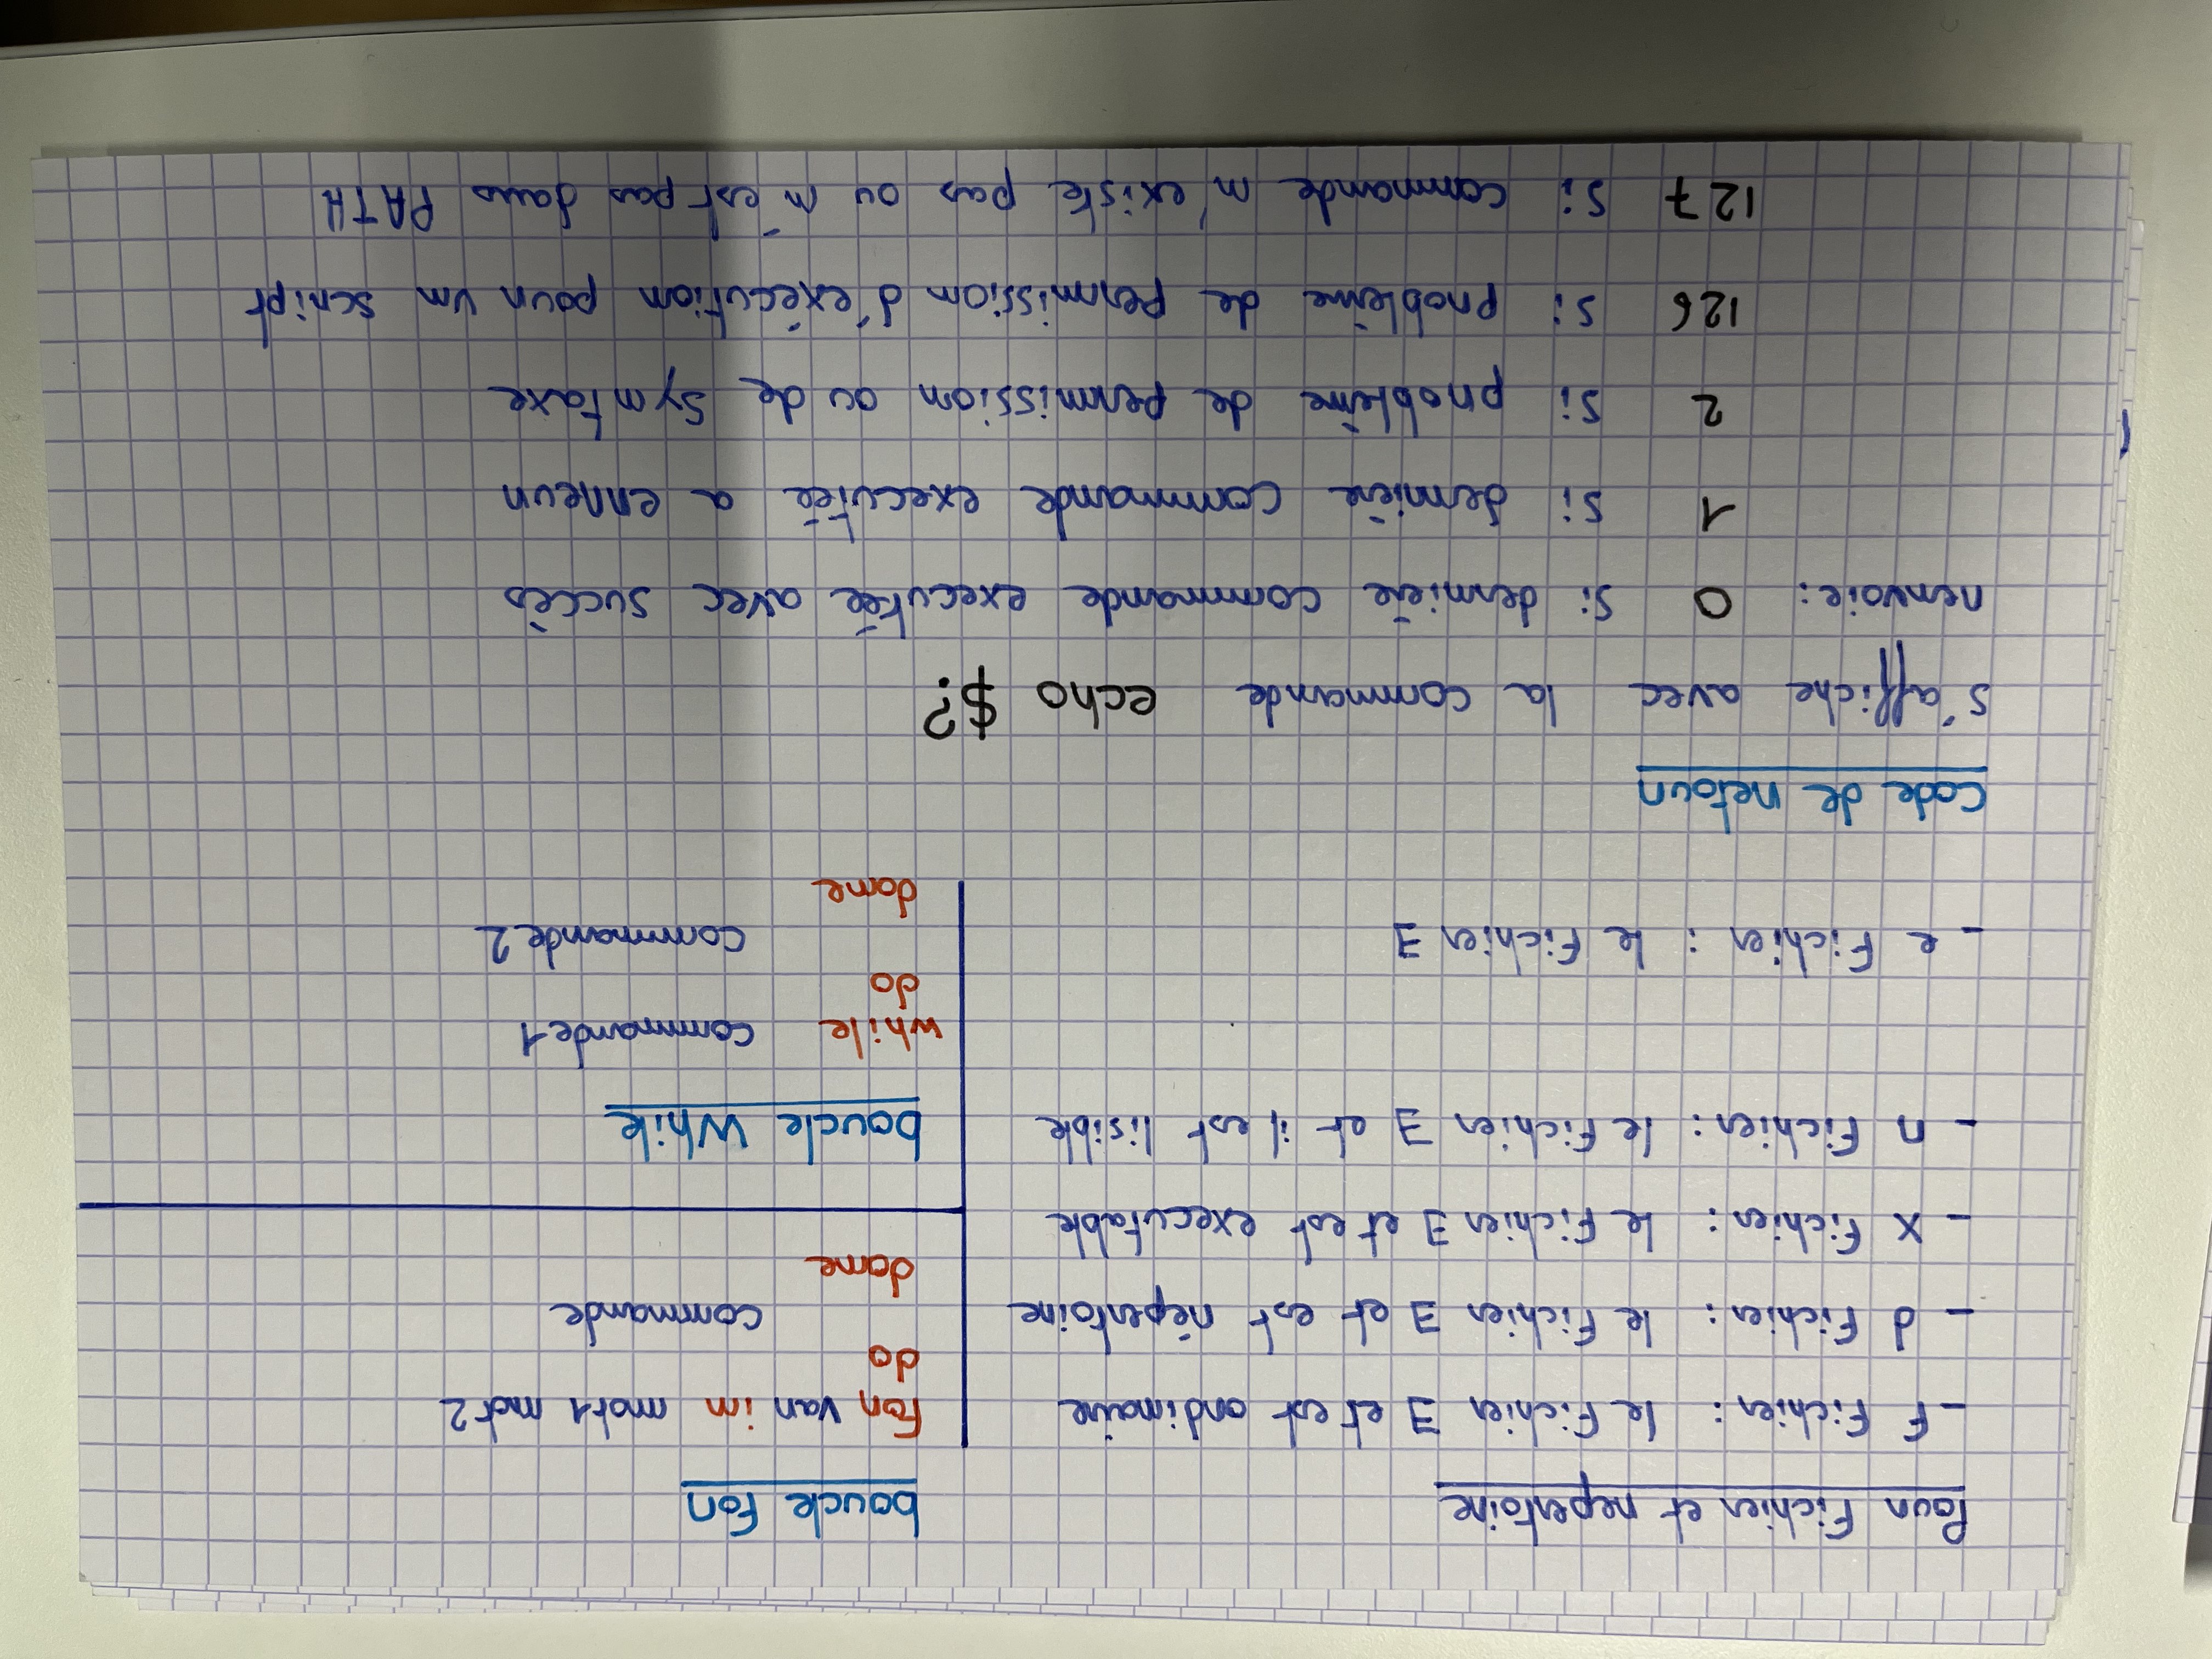 Pour Fichier et repertoire
- F Fichier : le Fichier ∃ et est ordinaire
- d Fichier : le Fichier ∃ et est répertoire
- x Fichier : le Fichier ∃ et est executable
- r Fichier : le Fichier ∃ et il est lisible
- e Fichier : le Fichier ∃
boucle For
For var in mot1 mot2
do
commande
done
boucle While
while commande1
do
commande2
done
Code de retour
s'affiche avec la commande echo $?
renvoie : 0 si dernière commande executée avec succès
1 si dernière commande executée a erreur
2 si problème de permission ou de syntaxe
126 si problème de permission d'exécution pour un script
127 si commande n'existe pas ou n'est pas dans PATH